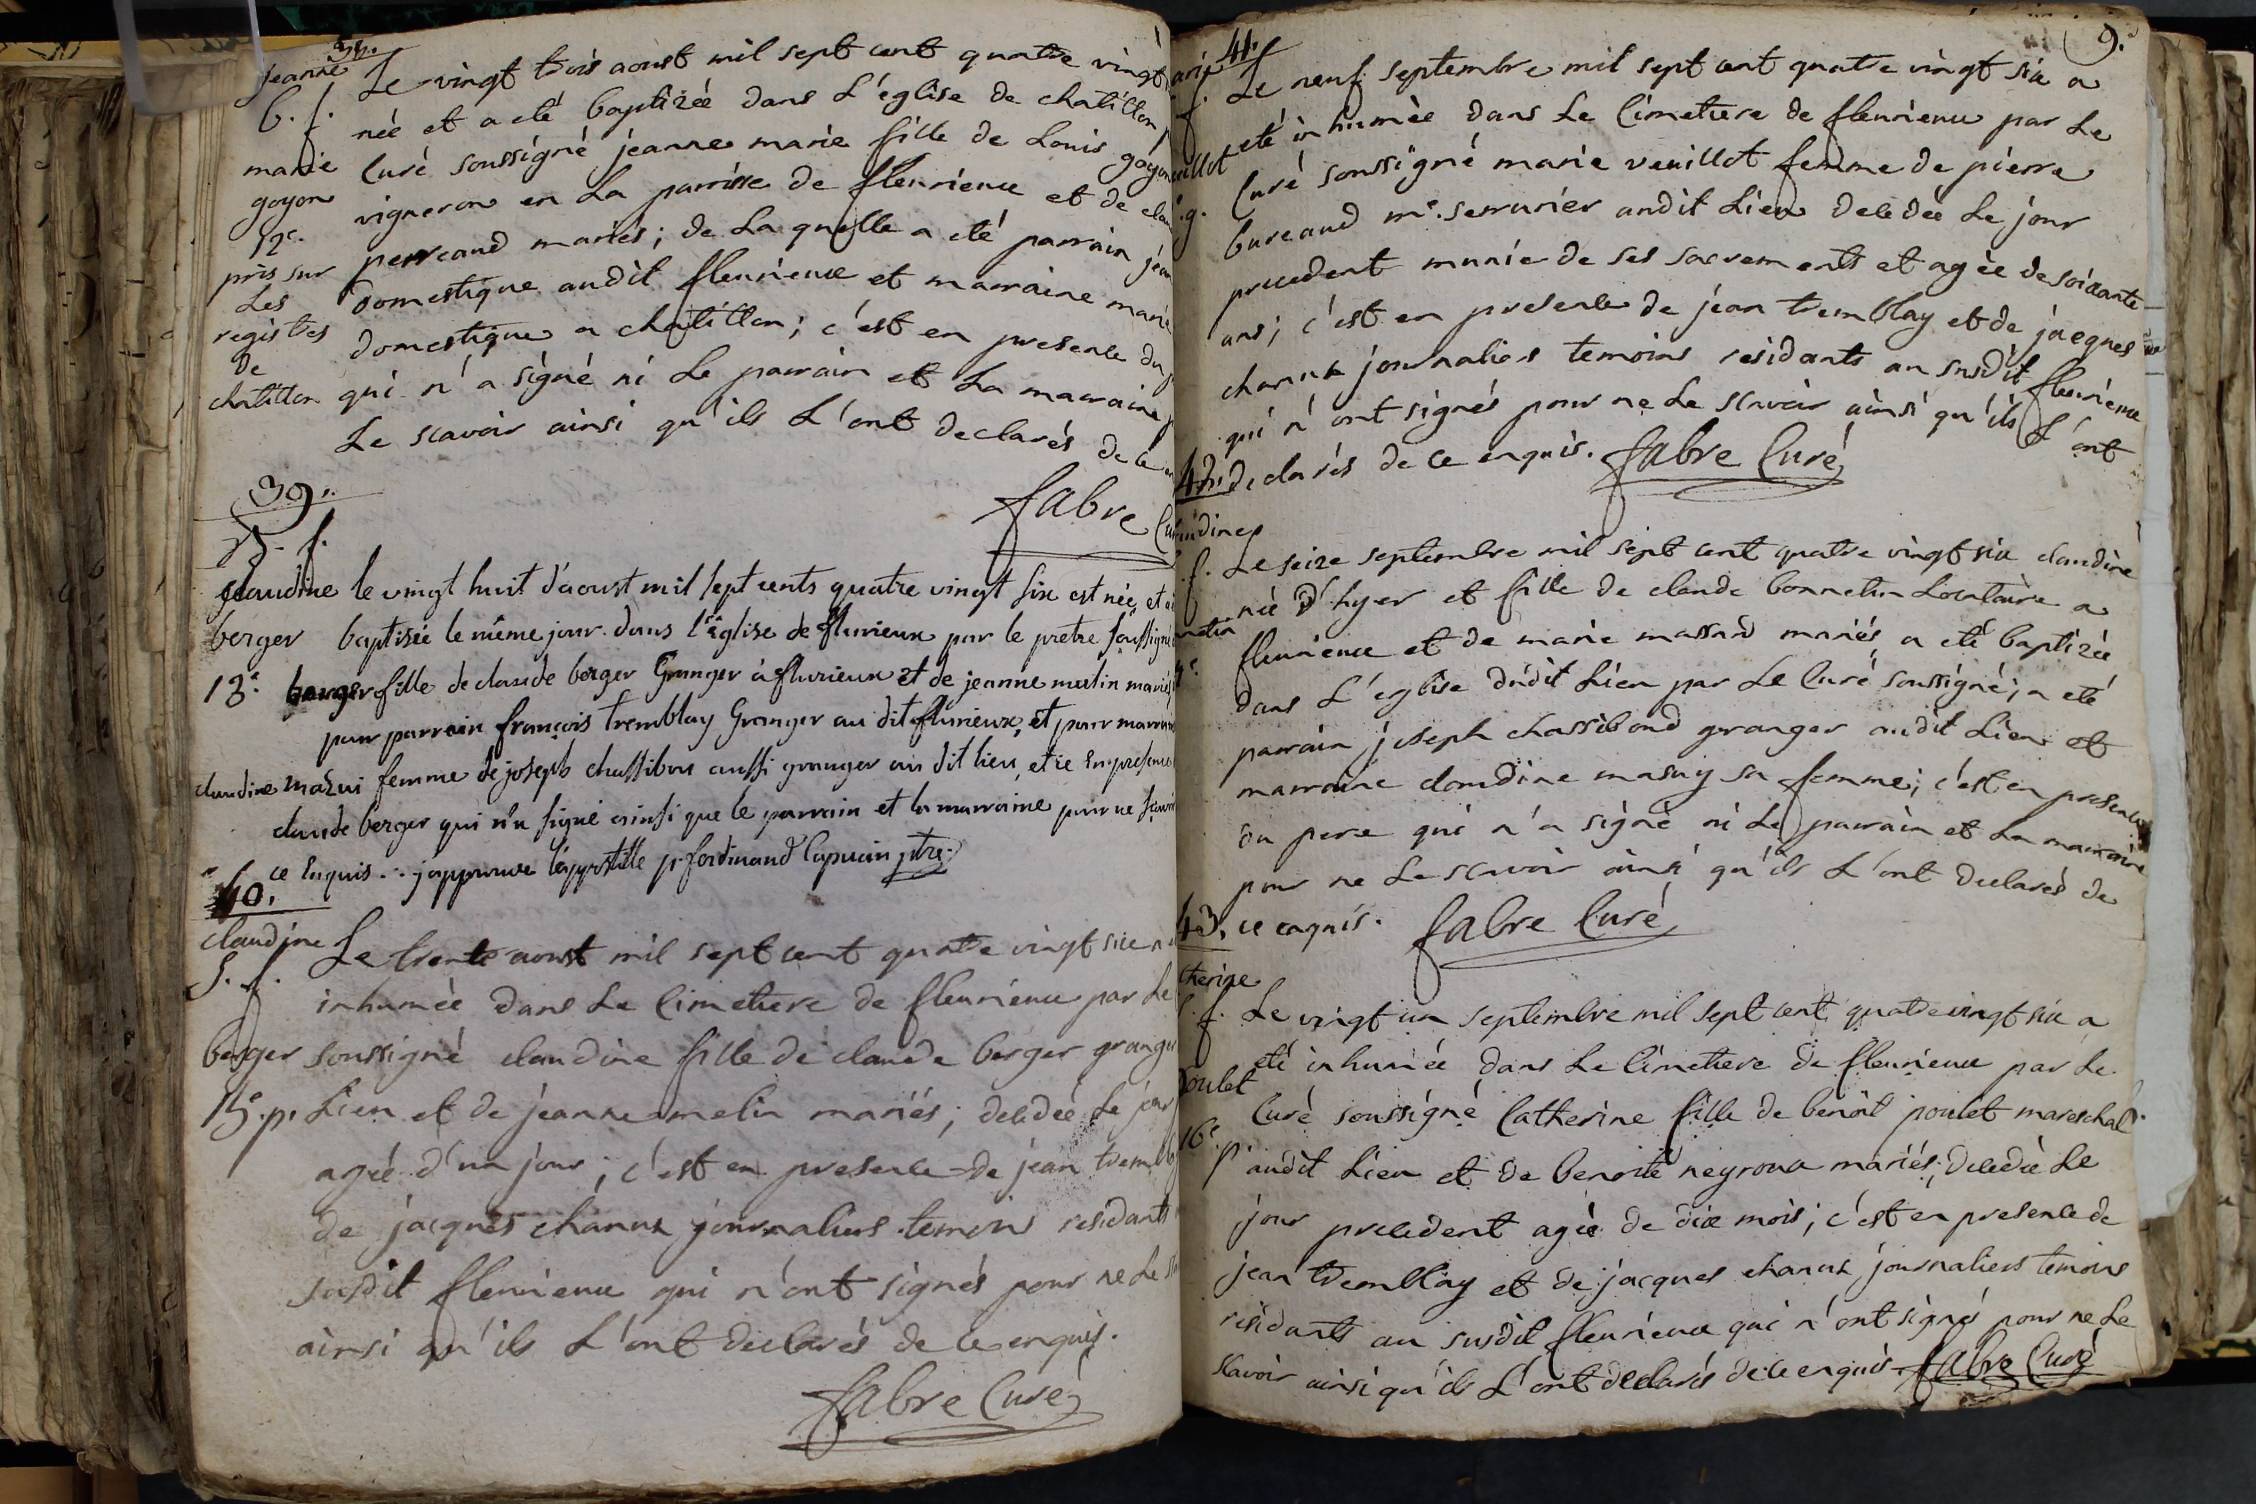 38.
jeanne
b. f.
marie
goyon
12e.
pris sur
Les
registres
de
chatillon
Le vingt trois aoust mil sept cent quatre vingt
née et a eté baptizée dans L'église de chatillon
Curé soussigné jeanne marie fille de Louis goyon
vigneron en La parrisse de fleurieux et de
perreaud mariés; de La quelle a eté parrain
domestique audit fleurieux et marraine marie
domestique a chatillon; c'est en presence du
qui n'a signé ni Le parrain et La marraine
Le scavoir ainsi qu'ils L'ont declarés de ce
fabre
39.
b. f.
claudine
berger
13e.
le vingt huit d'aoust mil sept cents quatre vingt six est née, et
baptisée le même jour dans l'église de flurieux par le pretre soussigné
fille de claude berger Granger à flurieux et de jeanne merlin mariés
pour parrain françois tremblay Granger au dit flurieux, et pour
claudine mazui femme de joseph chassibou aussi granger au dit lieu, et ce en presence
claude berger qui n'a signé ainsi que le parrain et la marraine pour ne
ce enquis. j'approuve l'appostille p. ferdinand Capucin ptre.
40.
claudine
S. f.
berger
15e. p.
Le trente aoust mil sept cent quatre vingt six
inhumée dans Le Cimetiere de fleurieux par Le
soussigné claudine fille de claude berger granger
Lieu et de jeanne melin mariés; decedée Le jour
agée d'un jour; c'est en presence de jean
de jacques chanux journaliers temoins residants
susdit fleurieux qui n'ont signés pour ne Le
ainsi qu'ils L'ont declarés de ce enquis.
fabre Curé
9.
41.
Le neuf septembre mil sept cent quatre vingt six a
eté inhumée dans Le Cimetiere de fleurieux par Le
Curé soussigné marie veuillot femme de pierre
bureaud me. serrurier audit Lieu decedée Le jour
precedent munie de ses sacrements et agée de soixante
ans; c'est en presence de jean tremblay et de jacques
chanux journaliers temoins residants au susdit fleurieux
qui n'ont signés pour ne Le scavoir ainsi qu'ils L'ont
declarés de ce enquis. fabre Curé
42.
Le seize septembre mil sept cent quatre vingt six claudine
née d'hyer et fille de claude bonnetin Locataire a
fleurieux et de marie massard mariés a eté baptizée
dans L'eglise dudit Lieu par Le Curé soussigné; a eté
parrain joseph chassibond granger audit Lieu et
marraine claudine masuy sa femme; c'est en presence
du pere qui n'a signé ni Le parrain et La marraine
pour ne Le scavoir ainsi qu'ils L'ont declarés de
ce enquis. fabre Curé
43.
therine
f.
poulet
16e.
p.
Le vingt un septembre mil sept cent quatre vingt six a
eté inhumée dans Le Cimetiere de fleurieux par Le
Curé soussigné Catherine fille de benoît poulet mareschal
audit Lieu et de benoite neyroux mariés; decedée Le
jour precedent agée de dix mois; c'est en presence de
jean tremblay et de jacques chanux journaliers temoins
residants au susdit fleurieux qui n'ont signés pour ne Le
scavoir ainsi qu'ils L'ont declarés de ce enquis. fabre Curé